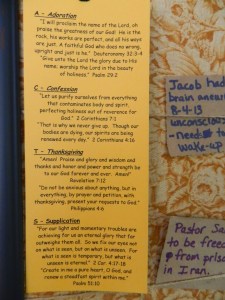 A - Adoration
"I will proclaim the name of the Lord, oh
praise the greatness of our God! He is the
rock, his works are perfect, and all his ways
are just. A faithful God who does no wrong,
upright and just is he." Deuteronomy 32:3-4
"Give unto the Lord the glory due to His
name, worship the Lord in the beauty
of holiness." Psalm 29:2
C - Confession
"Let us purify ourselves from everything
that contaminates body and spirit,
perfecting holiness out of reverence for
God." 2 Corinthians 7:1
"That is why we never give up. Though our
bodies are dying, our spirits are being
renewed every day." 2 Corinthians 4:16
T - Thanksgiving
"Amen! Praise and glory and wisdom and
thanks and honor and power and strength be
to our God forever and ever. Amen!"
Revelation 7:12
"Do not be anxious about anything, but in
everything, by prayer and petition, with
thanksgiving, present your requests to God."
Philippians 4:6
S - Supplication
"For our light and momentary troubles are
achieving for us an eternal glory that far
outweighs them all. So we fix our eyes not
on what is seen, but on what is unseen. For
what is seen is temporary, but what is
unseen is eternal." 2 Cor 4:17-18
"Create in me a pure heart, O God, and
renew a steadfast spirit within me."
Psalm 51:10
Jacob had
brain
8-4-13
unconscious
-need to
wake-up
Pastor
to be free
from
in Iran.